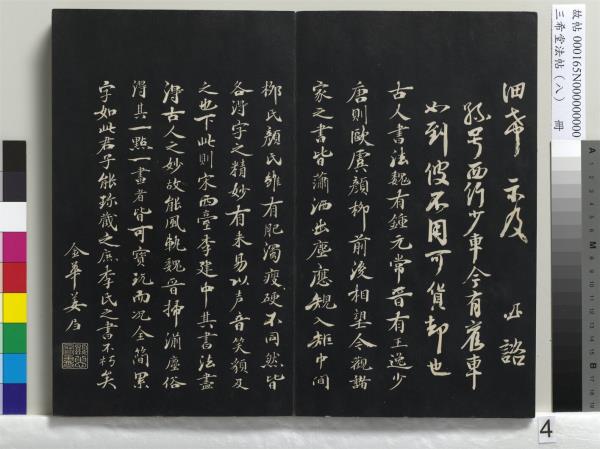 故帖 000165N000000000
三希堂法帖(八) 冊
細希 示及 諮
孫号西行少車今有舊車
如到彼不用可貨却也
古人書法魏有鍾元常晉有王逸少
唐則歐虞顏柳前後相望今觀諸
家之書皆蕭洒出塵應規入矩中間
柳氏顏氏雖有肥濁瘦硬不同然皆
各得字之精妙有未易以声音笑貌及
之也下此則宋西臺李建中其書法盡
得古人之妙故能風軌魏晉掃塵俗
得其一點一畫者皆可寶玩而況全簡累
字如此君子能珍藏之庶李氏之書不朽矣
金華姜
4